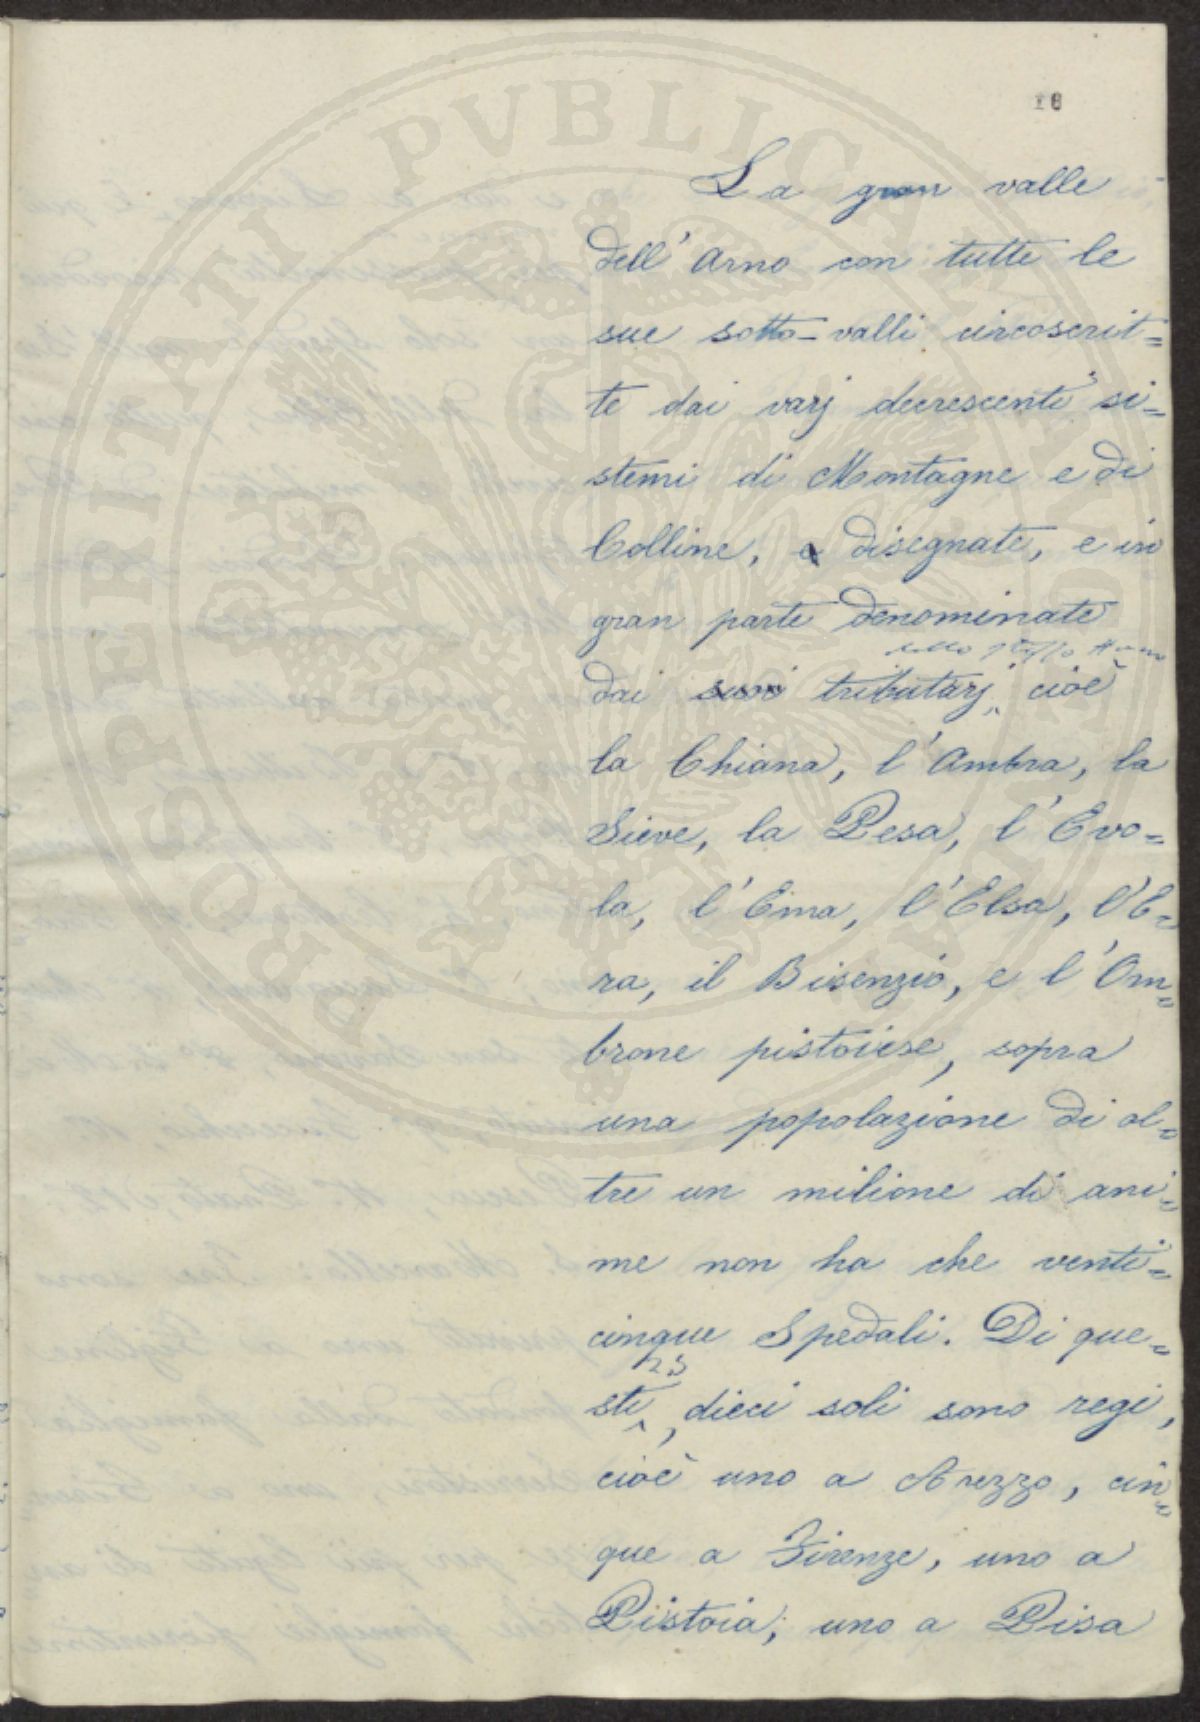 PROSPERITATI PVBLICAE
18
La gran valle
dell' Arno con tutte le
sue sotto-valli circoscrit=
te dai varj decrescenti si=
stemi di Montagne e di
Colline, e disegnate, e in
gran parte denominate
dello stesso Arno
dai suoi tributarj, cioè
la Chiana, l'Ambra, la
Sieve, la Pesa, l'Evo=
la, l'Ema, l'Elsa, l'E=
ra, il Bisenzio, e l'Om=
brone pistoiese, sopra
una popolazione di ol=
tre un milione di ani=
me non ha che venti=
cinque Spedali. Di que=
25
sti, dieci soli sono regi,
cioè uno a Arezzo, cin=
que a Firenze, uno a
Pistoia; uno a Pisa